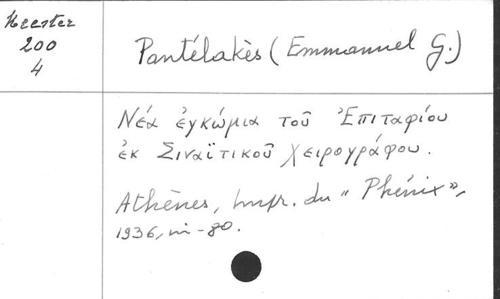 Meester
200
4
Pantélakès (Emmanuel G.)
Νέα ἐγκώμια τοῦ Ἐπιταφίου
ἐκ Σιναϊτικοῦ χειρογράφου.
Athènes, Impr. du "Phénix",
1936, in-8o.